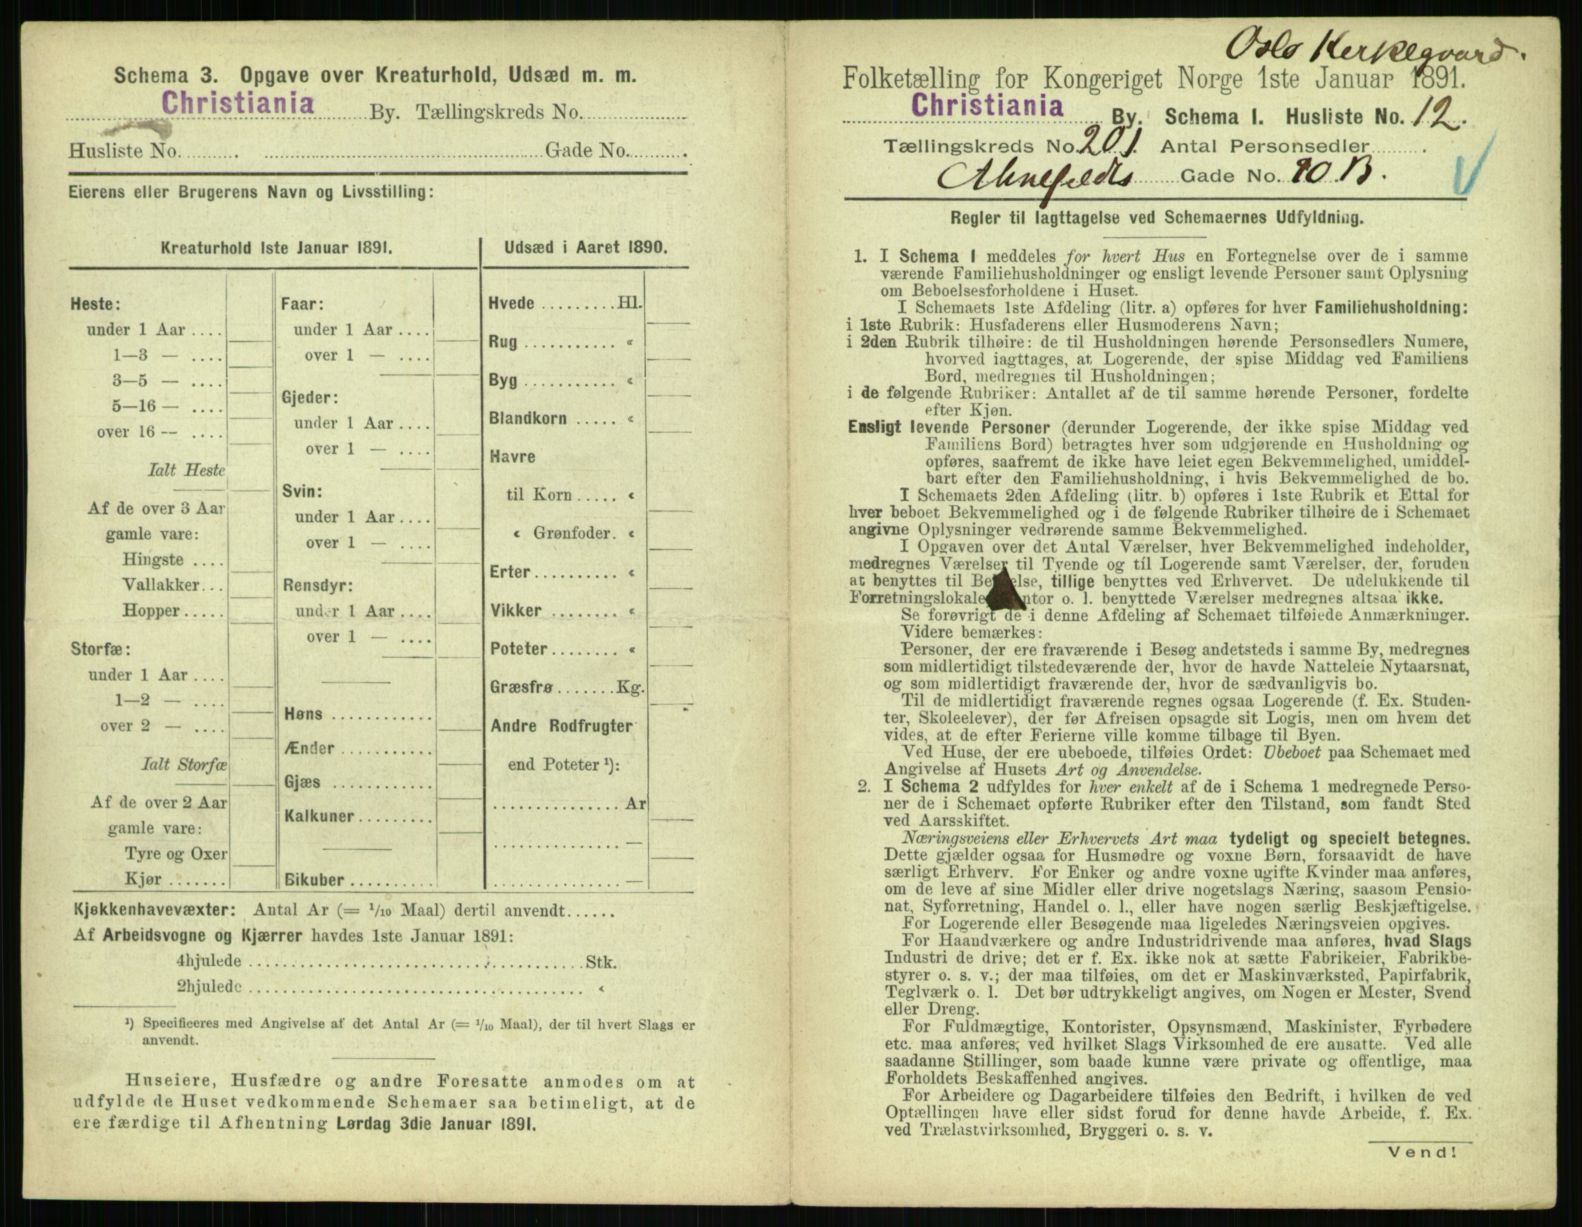 Schema 3. Opgave over Kreaturhold, Udsæd m. m.
Christiania By. Tællingskreds No.
Husliste No. Gade No.
Eierens eller Brugerens Navn og Livsstilling:
Kreaturhold 1ste Januar 1891.
Heste:
under 1 Aar
1—3 —
3—5 —
5—16 —
over 16 —
Ialt Heste
Af de over 3 Aar
gamle vare:
Hingste
Vallakker
Hopper
Storfæ:
under 1 Aar
1—2 —
over 2 —
Ialt Storfæ
Af de over 2 Aar
gamle vare:
Tyre og Oxer
Kjør
Faar:
under 1 Aar
over 1 —
Gjeder:
under 1 Aar
over 1 —
Svin:
under 1 Aar
over 1 —
Rensdyr:
under 1 Aar
over 1 —
Høns
Ænder
Gjæs
Kalkuner
Bikuber
Udsæd i Aaret 1890.
Hvede Hl.
Rug «
Byg «
Blandkorn «
Havre
til Korn «
« Grønfoder. «
Erter «
Vikker «
Poteter «
Græsfrø Kg.
Andre Rodfrugter
end Poteter ¹):
Ar
—
—
Kjøkkenhavevæxter: Antal Ar (= 1/10 Maal) dertil anvendt
Af Arbeidsvogne og Kjærrer havdes 1ste Januar 1891:
4hjulede Stk.
2hjulede «
¹) Specificeres med Angivelse af det Antal Ar (= 1/10 Maal), der til hvert Slags er
anvendt.
Huseiere, Husfædre og andre Foresatte anmodes om at
udfylde de Huset vedkommende Schemaer saa betimeligt, at de
ere færdige til Afhentning Lørdag 3die Januar 1891.
Oslo Kerkegaard.
Folketælling for Kongeriget Norge 1ste Januar 1891.
Christiania By. Schema I. Husliste No. 12.
Tællingskreds No. 201. Antal Personsedler
Ahnefeldts Gade No. 10 B.
Regler til Iagttagelse ved Schemaernes Udfyldning.
1. I Schema I meddeles for hvert Hus en Fortegnelse over de i samme
værende Familiehusholdninger og ensligt levende Personer samt Oplysning
om Beboelsesforholdene i Huset.
I Schemaets 1ste Afdeling (litr. a) opføres for hver Familiehusholdning:
i 1ste Rubrik: Husfaderens eller Husmoderens Navn;
i 2den Rubrik tilhøire: de til Husholdningen hørende Personsedlers Numere,
hvorved iagttages, at Logerende, der spise Middag ved Familiens
Bord, medregnes til Husholdningen;
i de følgende Rubriker: Antallet af de til samme hørende Personer, fordelte
efter Kjøn.
Ensligt levende Personer (derunder Logerende, der ikke spise Middag ved
Familiens Bord) betragtes hver som udgjørende en Husholdning og
opføres, saafremt de ikke have leiet egen Bekvemmelighed, umiddel-
bart efter den Familiehusholdning, i hvis Bekvemmelighed de bo.
I Schemaets 2den Afdeling (litr. b) opføres i 1ste Rubrik et Ettal for
hver beboet Bekvemmelighed og i de følgende Rubriker tilhøire de i Schemaet
angivne Oplysninger vedrørende samme Bekvemmelighed.
I Opgaven over det Antal Værelser, hver Bekvemmelighed indeholder,
medregnes Værelser til Tyende og til Logerende samt Værelser, der, foruden
at benyttes til Be lse, tillige benyttes ved Erhvervet. De udelukkende til
Forretningslokale ntor o. l. benyttede Værelser medregnes altsaa ikke.
Se forøvrigt de i denne Afdeling af Schemaet tilføiede Anmærkninger.
Videre bemærkes:
Personer, der ere fraværende i Besøg andetsteds i samme By, medregnes
som midlertidigt tilstedeværende der, hvor de havde Natteleie Nytaarsnat,
og som midlertidigt fraværende der, hvor de sædvanligvis bo.
Til de midlertidigt fraværende regnes ogsaa Logerende (f. Ex. Studen-
ter, Skoleelever), der før Afreisen opsagde sit Logis, men om hvem det
vides, at de efter Ferierne ville komme tilbage til Byen.
Ved Huse, der ere ubeboede, tilføies Ordet: Ubeboet paa Schemaet med
Angivelse af Husets Art og Anvendelse.
2. I Schema 2 udfyldes for hver enkelt af de i Schema 1 medregnede Perso-
ner de i Schemaet opførte Rubriker efter den Tilstand, som fandt Sted
ved Aarsskiftet.
Næringsveiens eller Erhvervets Art maa tydeligt og specielt betegnes.
Dette gjælder ogsaa for Husmødre og voxne Børn, forsaavidt de have
særligt Erhverv. For Enker og andre voxne ugifte Kvinder maa anføres,
om de leve af sine Midler eller drive nogetslags Næring, saasom Pensio-
nat, Syforretning, Handel o. l., eller have nogen særlig Beskjæftigelse.
For Logerende eller Besøgende maa ligeledes Næringsveien opgives.
For Haandværkere og andre Industridrivende maa anføres, hvad Slags
Industri de drive; det er f. Ex. ikke nok at sætte Fabrikeier, Fabrikbe-
styrer o. s. v.; der maa tilføies, om det er Maskinværksted, Papirfabrik,
Teglværk o. l. Det bør udtrykkeligt angives, om Nogen er Mester, Svend
eller Dreng.
For Fuldmægtige, Kontorister, Opsynsmænd, Maskinister, Fyrbødere
etc. maa anføres, ved hvilket Slags Virksomhed de ere ansatte. Ved alle
saadanne Stillinger, som baade kunne være private og offentlige, maa
Forholdets Beskaffenhed angives.
For Arbeidere og Dagarbeidere tilføies den Bedrift, i hvilken de ved
Optællingen have eller sidst forud for denne havde Arbeide, f. Ex.
ved Trælastvirksomhed, Bryggeri o. s. v.
Vend!